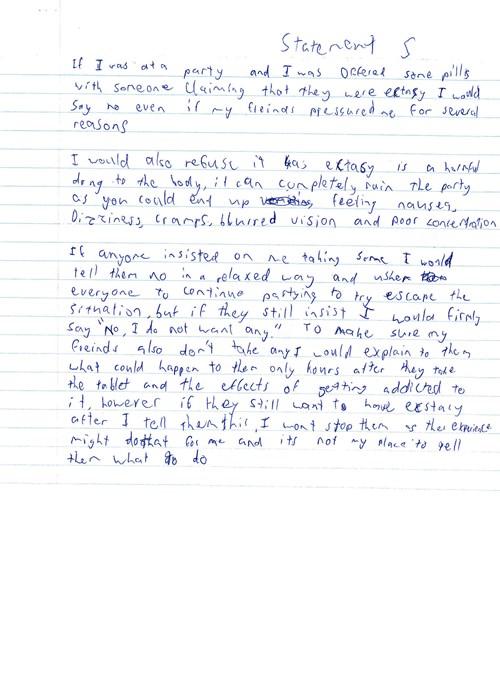 Statement S
If I was at a party and I was offered some pills
with someone claiming that they were extasy I would
say no even if my freinds pressured me for several
reasons
I would also refuse it as extasy is a harmful
drug to the body, it can completely ruin the party
as you could end up feeling nauses,
Dizziness, cramps, blurred vision and poor concentration
If anyone insisted on me taking some I would
tell them no in a relaxed way and usher
everyone to continue partying to try escape the
situation, but if they still insist I would firmly
say "No, I do not want any." To make sure my
freinds also don't take any I would explain to them
what could happen to them only hours after they take
the tablet and the effects of getting addicted to
it, however if they still want to have exstacy
after I tell them this, I wont stop them as the experience
might do that for me and its not my place to tell
them what to do